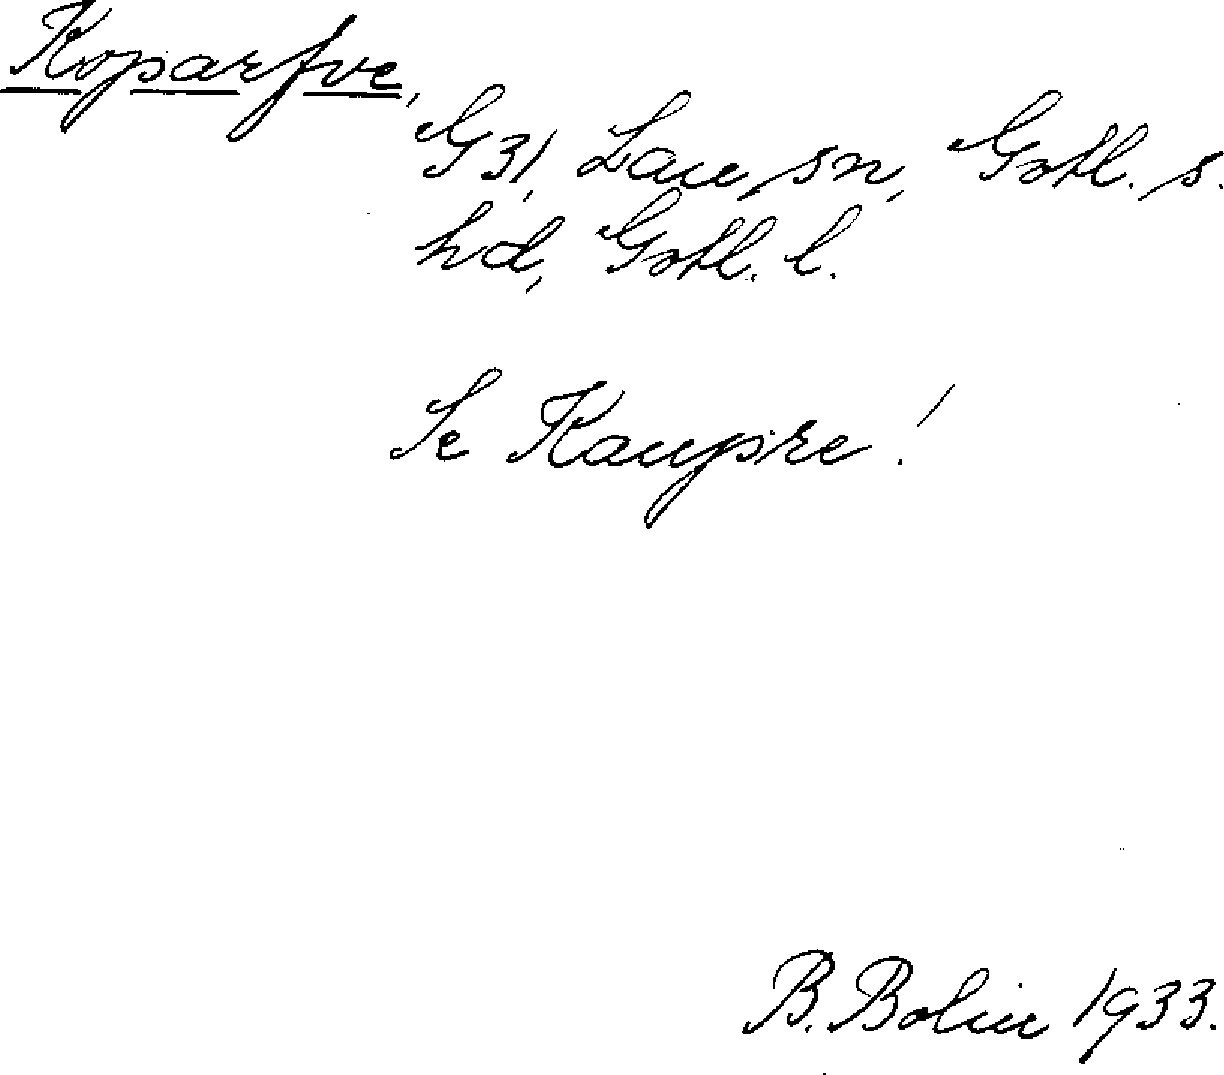 Koparfve,
G31, Lau sn, Gotl. s.
hd, Gotl. l.
Se Kaupre!
B. Bolin 1933.